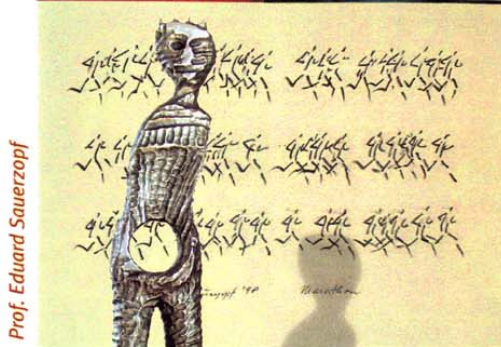 Prof. Eduard Sauerzopf
Sauerzopf '98 Marathon